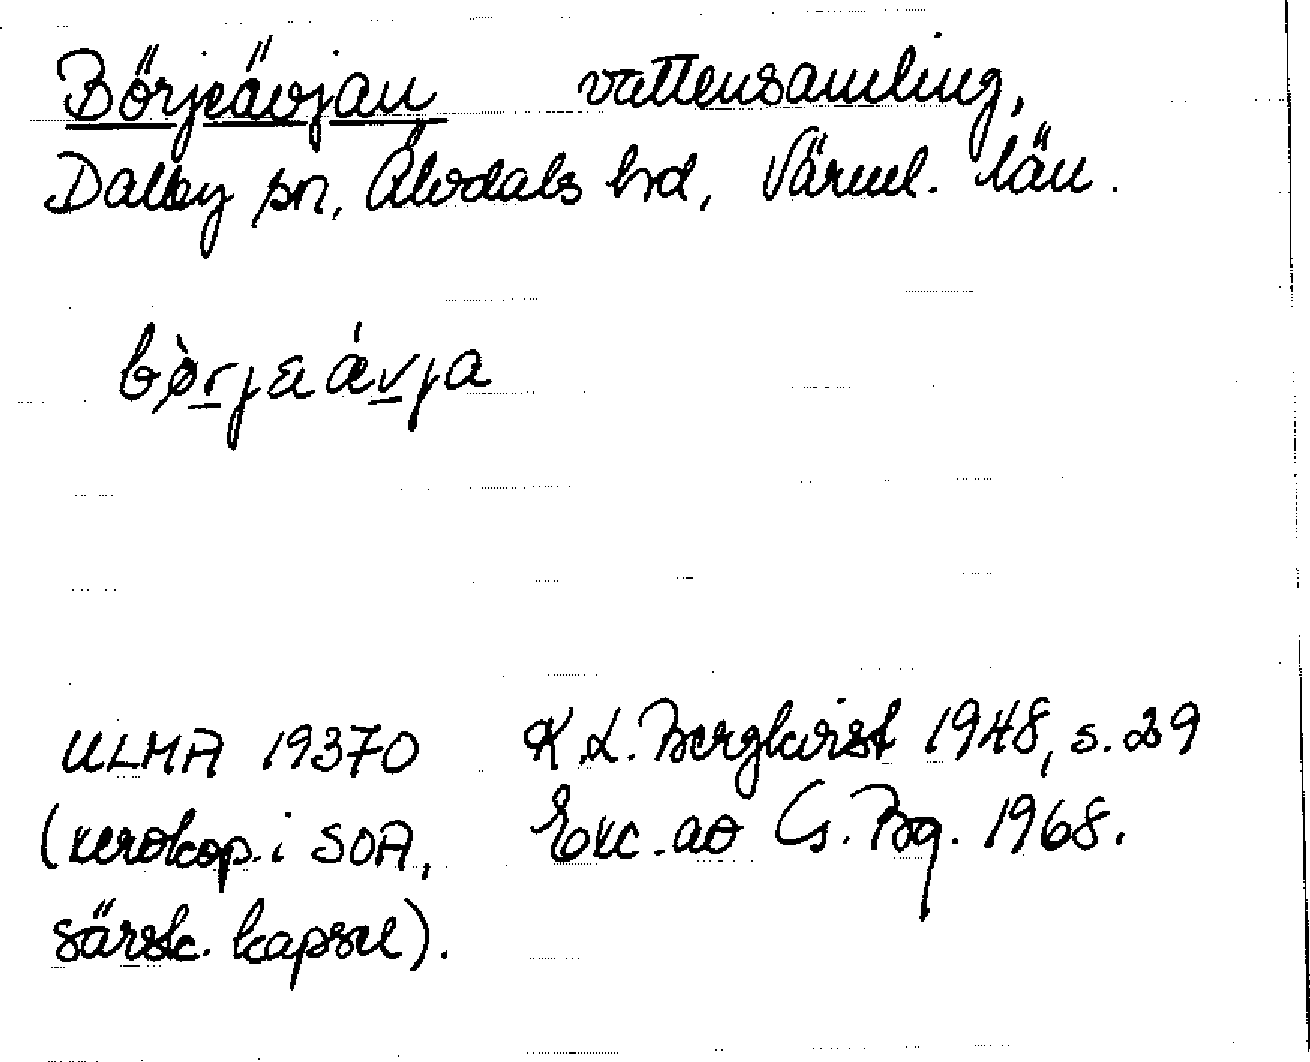 Börjeävjan vattensamling,
Dalby sn, Älvdals hd, Värml. län.
bø̀rjeǽvja
ULMA 19370 K L. Bergkvist 1948, s. 29
(xerokop. i SOA, Exc. av G. Bg. 1968.
särsk. kapsel).